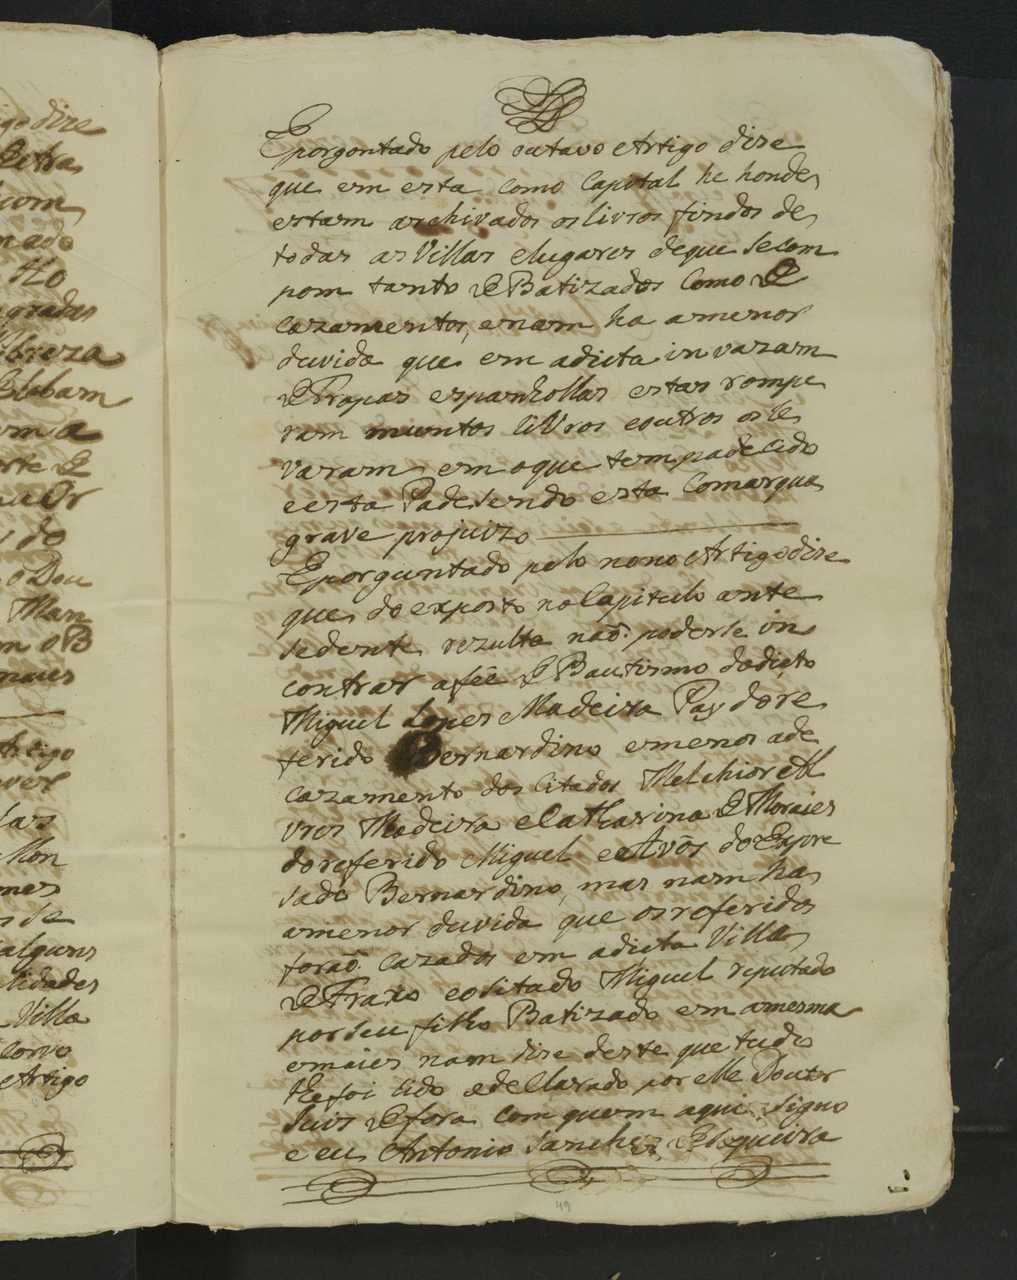 igo dire
Letra
hum
mado
Ho
gradas
breza
Elebam
uma
orte E
ua Or
do
o Dou
Man
m o B
maies
Artigo
aver
las
Mon
mes
sde
alguns
lidades
Villa
corvo
Artigo
Eporgontado pelo outavo Artigo dise
que em esta como Capital he honde
estam archivados os livros findos de
todas as Villas elugares deque secom
pom tanto de Batizados como de
cazamentos, enam ha amenor
duvida que em adicta invazam
de Tropas espanhollas estas rompe
ram muntos livros eoutros os le
varam em oque tem padecido
eesta Padesendo esta Comarqua
grave projuizo
Eporguntado pelo nono Artigo dise
que do exposto no Capitulo ante
sedente rezulta não poderse in
contrar afee de Bautismo dodicto
Miguel Lopes Madeira Pay dore
ferido Bernardino emenos ade
cazamento dos citados Melchior Al
vres Madeira eCatharina de Moraies
doreferido Miguel eAvôs do Expre
sado Bernardino, mas nam ha
amenor duvida que osreferidos
forão cazados em adicta Villa
de Fraxo eositado Miguel reputado
por seu filho Batizado em amesma
emaies nam dise deste que tudo
lhe foi lido edecllarado por elle Doutor
Juis de fora com quem aqui signo
e eu Antonio Sanchez de Siqueira
49